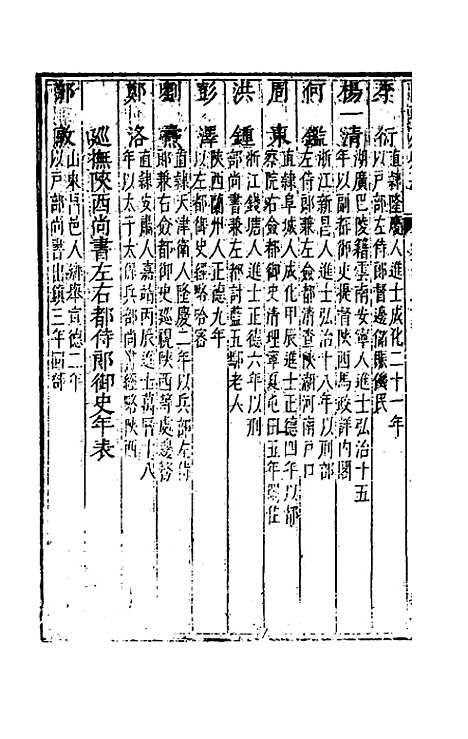 李衍 直隸隆慶人進士成化二十一年
以戶部左侍郎督邊儲賑饑民
楊一清 湖廣巴陵籍雲南安寧人進士弘治十五
年以副都御史提督陝西馬政詳內閣
何鑑 浙江新昌人進士弘治十八年以刑部
左侍郎兼左僉都清查陝潮河南戶口
周東 直隸阜城人成化甲辰進士正德四年以都
察院右僉都御史清理寧夏屯田五年
洪鍾 浙江錢塘人進士正德六年以刑
部尚書兼左都討藍五鄢老人
彭澤 陝西蘭州人正德九年
以左都御史經略哈密
劉燾 直隸天津衛人隆慶二年以兵部左侍
郎兼右僉都御史巡視陝西等處邊務
鄭洛 直隸安肅人嘉靖丙辰進士萬曆十八
年以太子太保兵部尚書經略陝西
巡撫陝西尚書左右都侍郎御史年表
郭敦 山東堂邑人鄉舉宣德二年
以戶部尚書出鎮三年回部